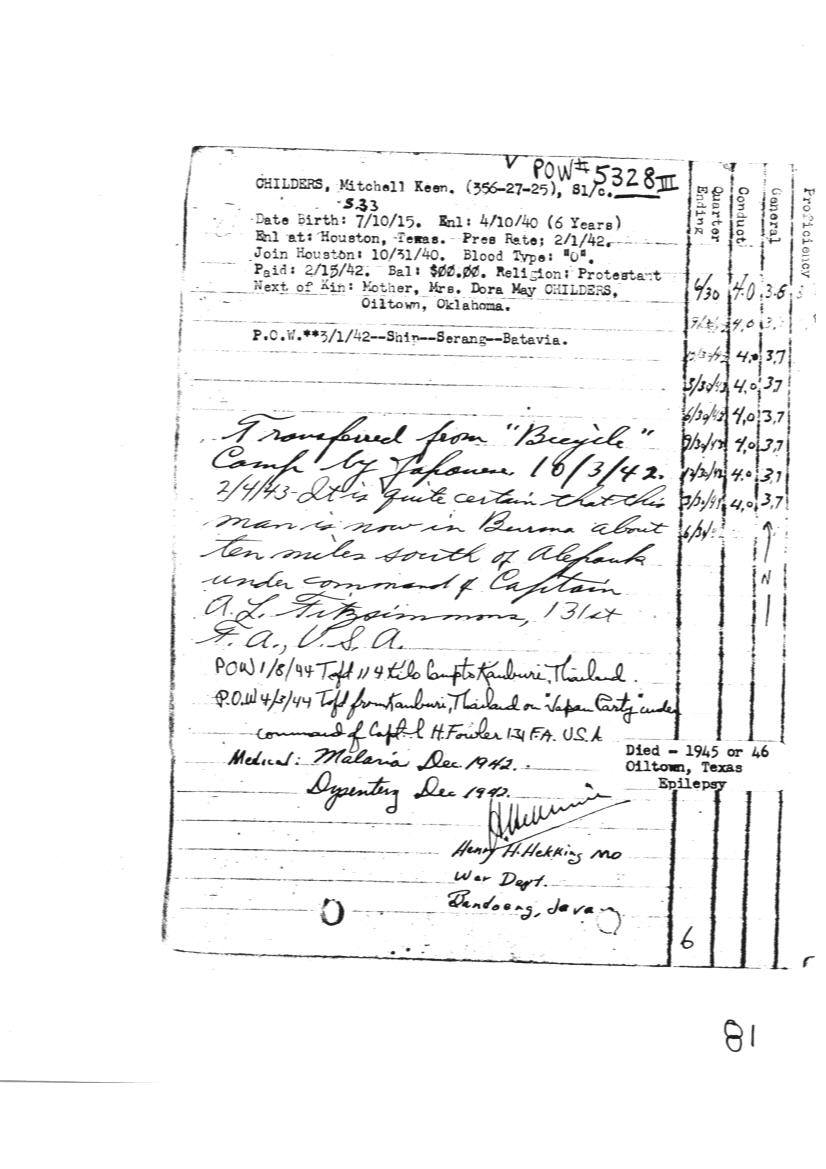 V POW# 5328 III
CHILDERS, Mitchell Keen. (356-27-25), S1/c.
S.33
Date Birth: 7/10/15. Enl: 4/10/40 (6 Years)
Enl at: Houston, Texas. Pres Rate; 2/1/42.
Join Houston: 10/31/40. Blood Type: "O".
Paid: 2/15/42. Bal: $00.00. Religion: Protestant
Next of Kin: Mother, Mrs. Dora May CHILDERS,
Oiltown, Oklahoma.
P.O.W.**3/1/42--Ship--Serang--Batavia.
Transferred from "Bicycle"
Camp by Japanese 10/3/42.
2/4/43 It is quite certain that this
man is now in Burma about
ten miles south of Alepauk
under command of Captain
A. L. Fitzsimmons, 131st
F. A., U.S.A.
POW 1/8/44 Tsfd 114 Kilo Camp to Kanburi, Thailand.
P.O.W 4/3/44 Tsfd from Kanburi, Thailand on "Japan Party" under
command of Capt. H. Fowler 131 F.A. U.S.A
Medical: Malaria Dec 1942.
Dysentery Dec 1942.
Died - 1945 or 46
Oiltown, Texas
Epilepsy
Henry H. Hekking MD
War Dept.
Bandoeng, Java
Quarter Ending Conduct General Proficiency
6/30 4.0 3.6
4.0
4.0 3.7
3/30/43 4.0 3.7
6/30/43 4.0 3.7
9/30/43 4.0 3.7
12/30/43 4.0 3.7
3/30/44 4.0 3.7
6/30/
N
6
81